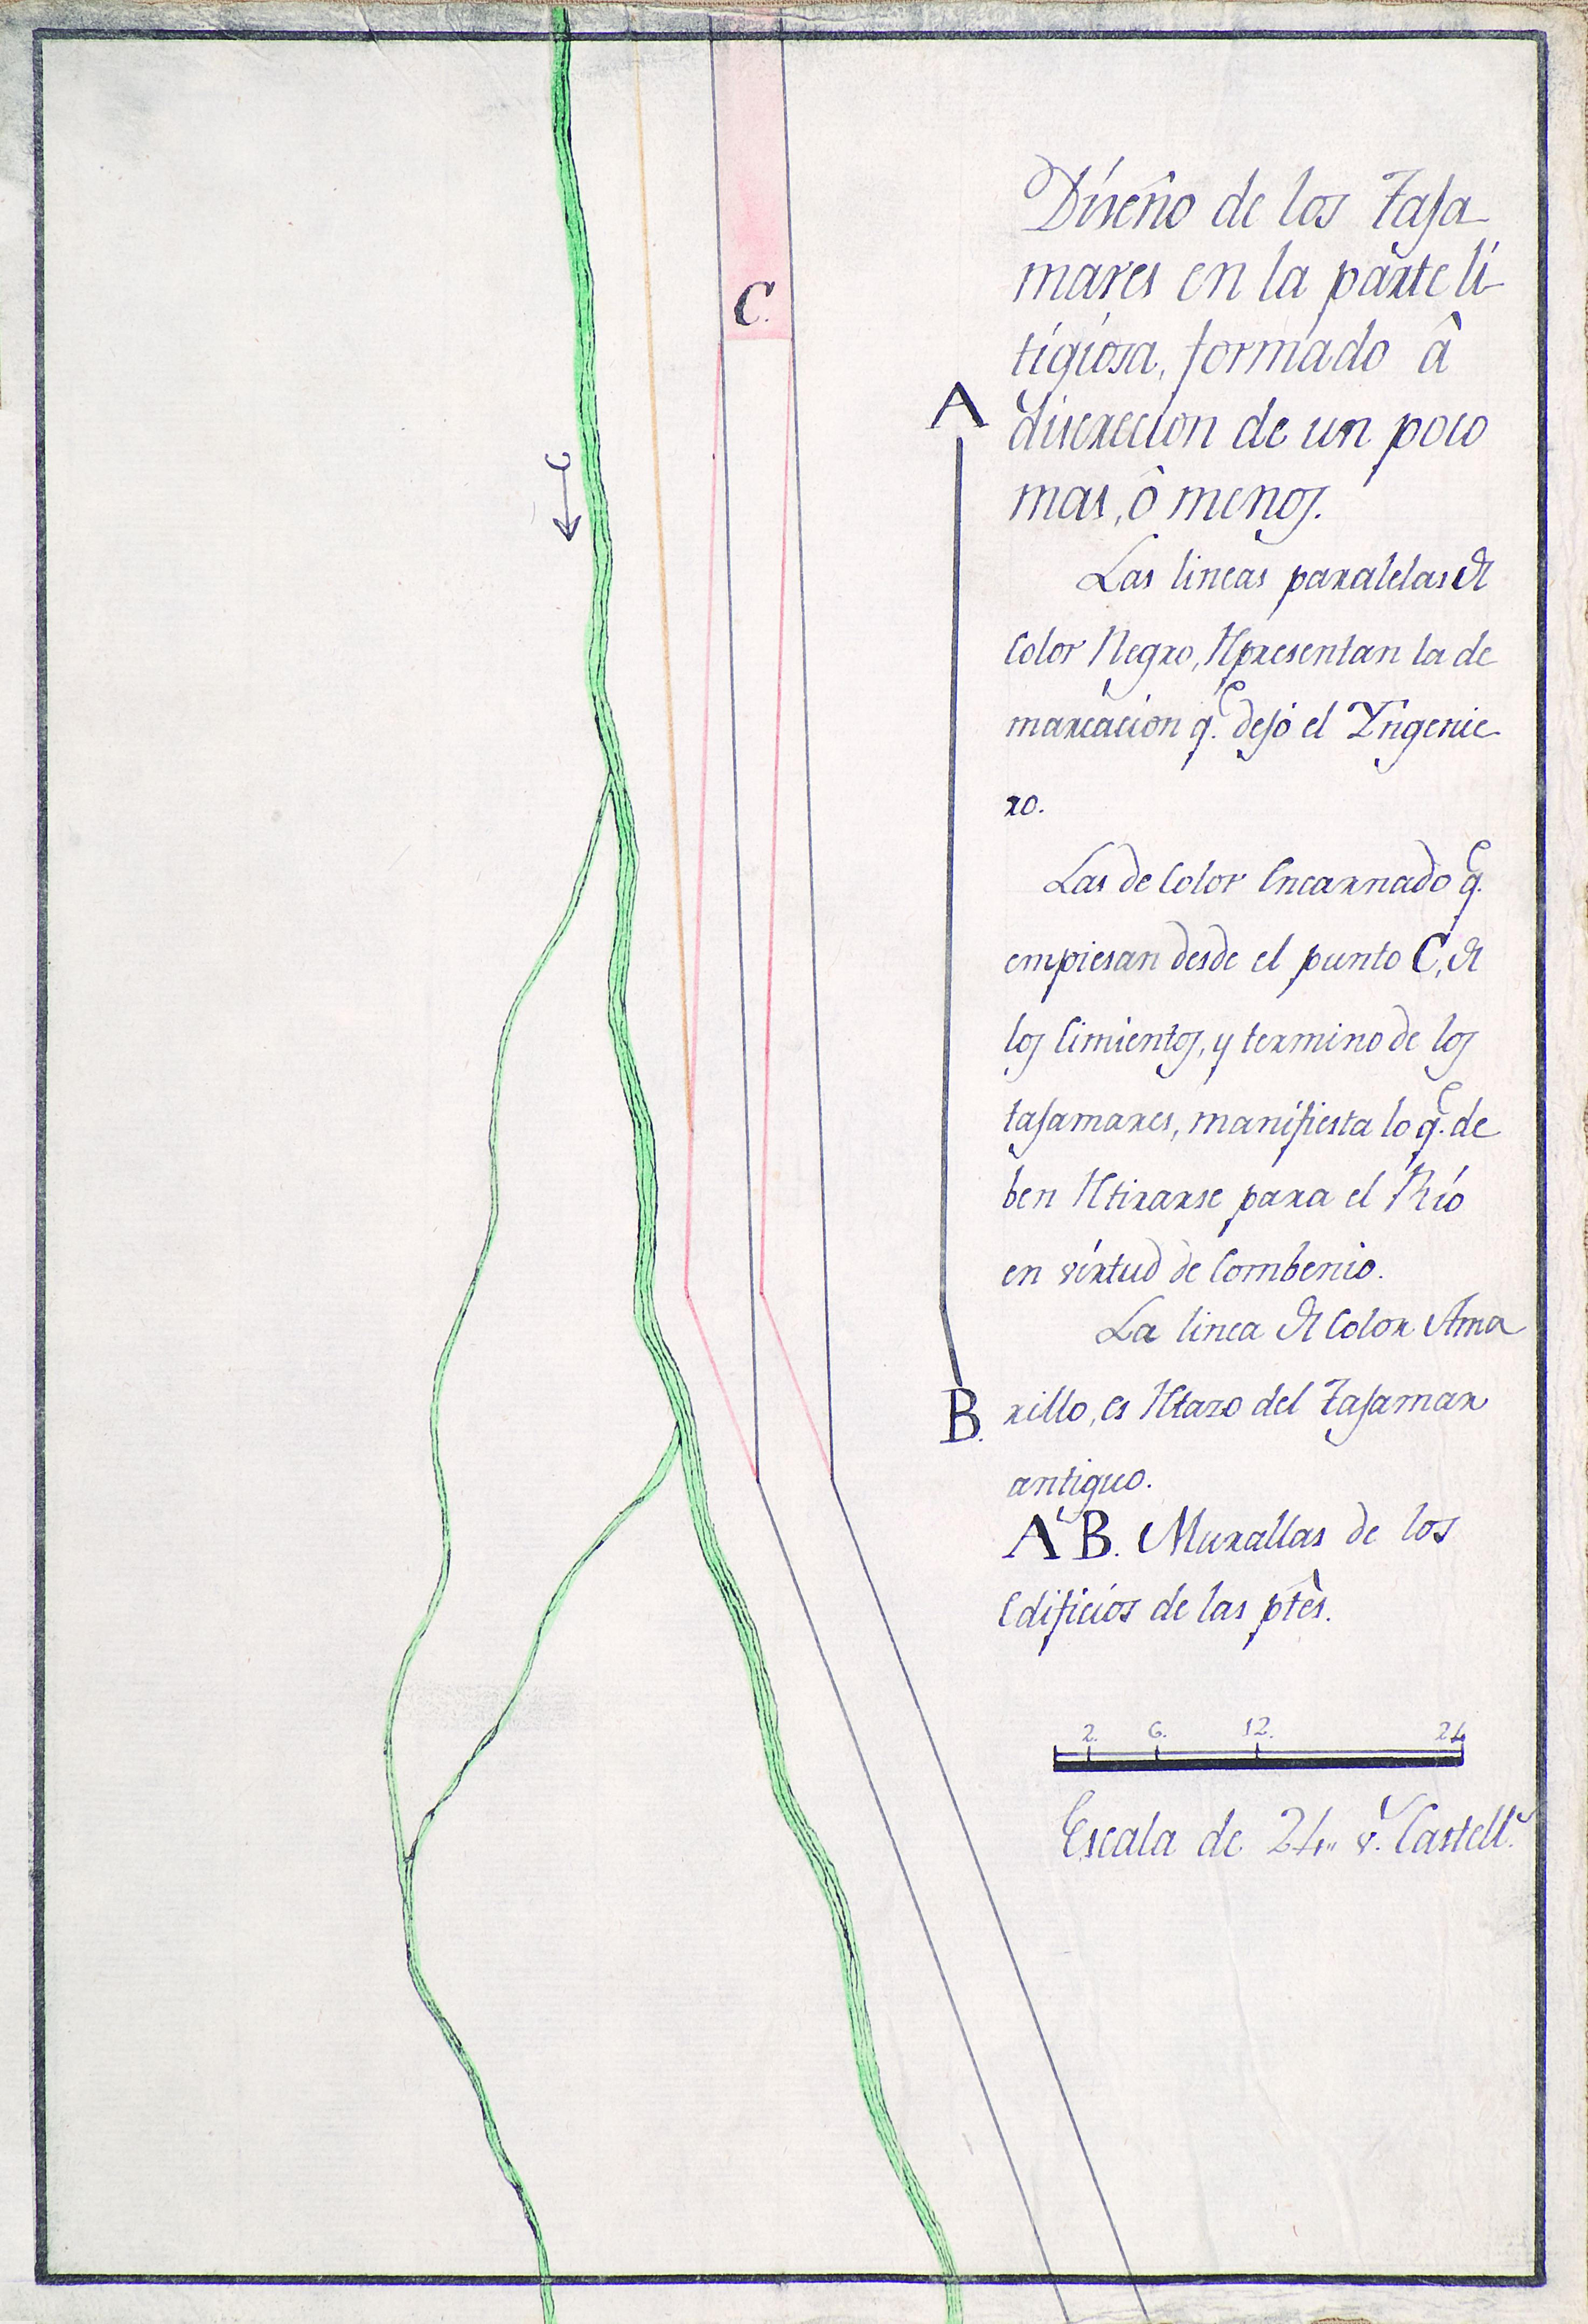 C.
A
B.
Diseño de los Taja
mares en la parte li
tigiosa, formado â
discrecion de un poco
mas, ô menos.
Las lineas paralelas de
Color Negro, Representan la de
marcacion q.e dejó el Yngenie
ro.
Las de Color Encarnado q.e
empiesan desde el punto C, de
los Cimientos, y termino de los
tajamares, manifiesta lo q.e de
ben Retirarse para el Río
en virtud de Combenio.
La linea de Color Ama
rillo, es Retazo del Tajamar
antiguo.
A B. Murallas de los
Edificios de las ptês.
2. 6. 12. 24
Escala de 24,, v.s Castell.s